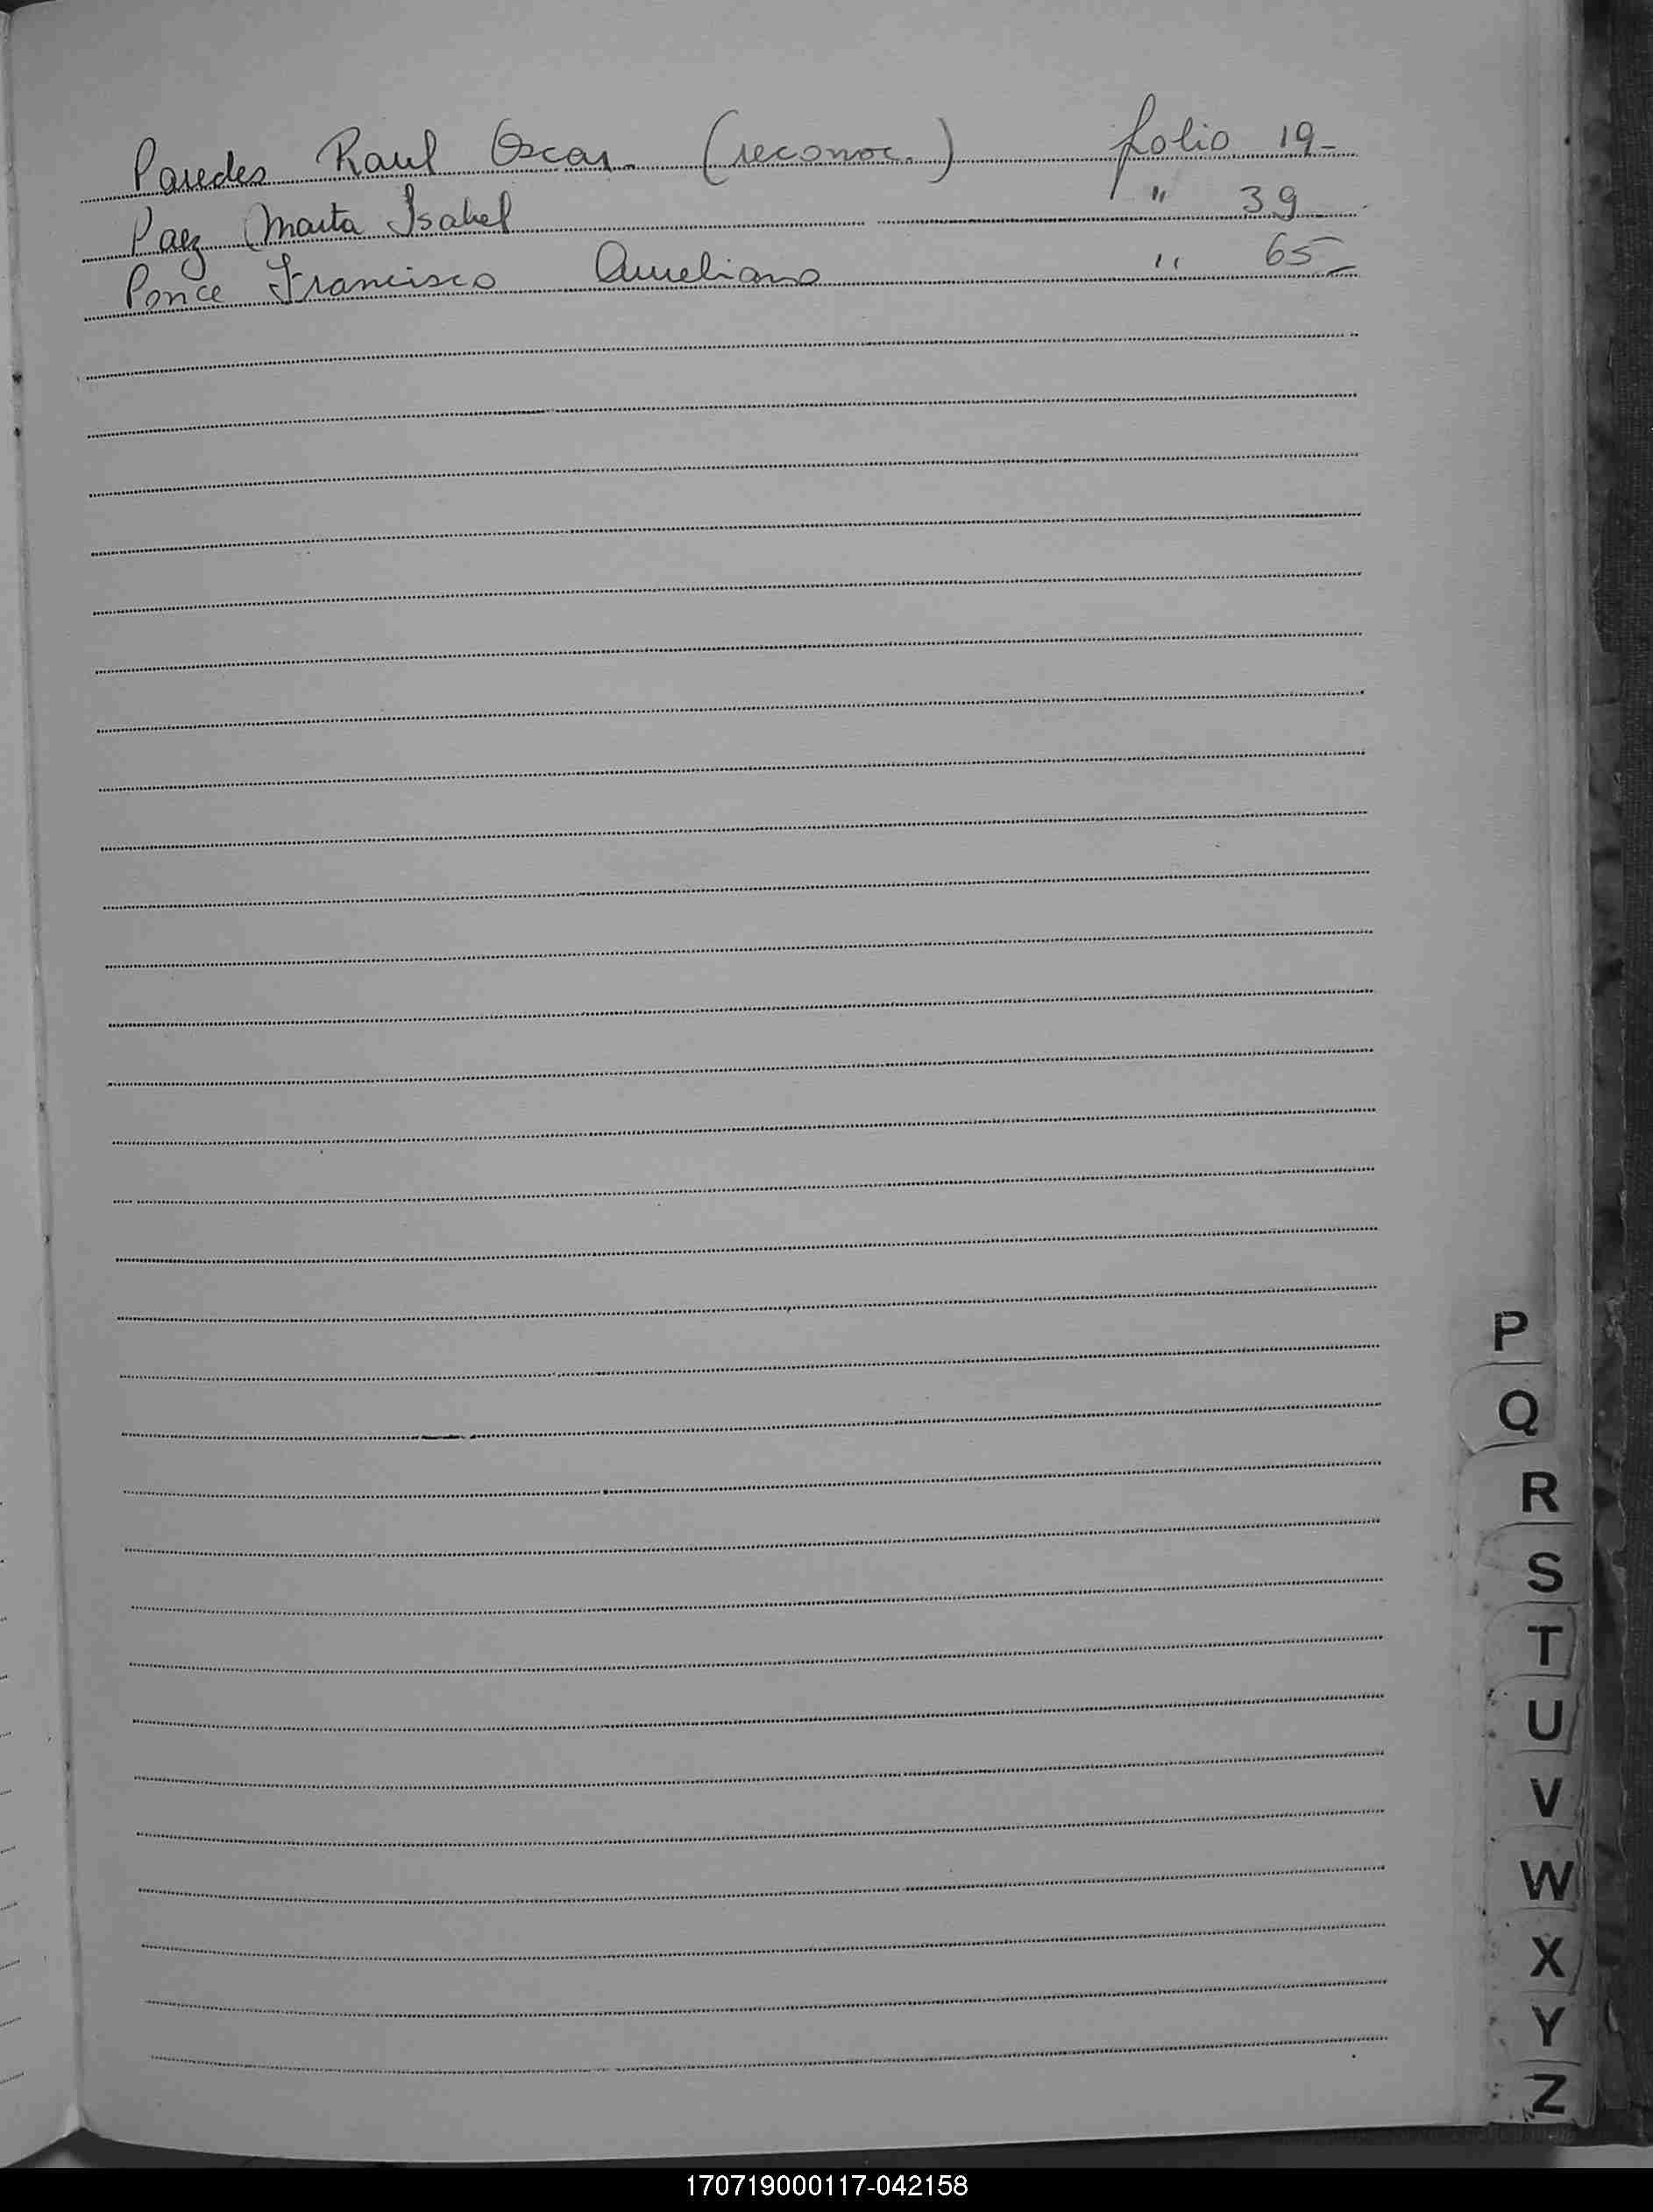 Paredes Raul Oscar. (reconoc.) folio 19-
Paez Marta Isabel " 39
Ponce Francisco Aureliano " 65-
P
Q
R
S
T
U
V
W
X
Y
Z
170719000117-042158